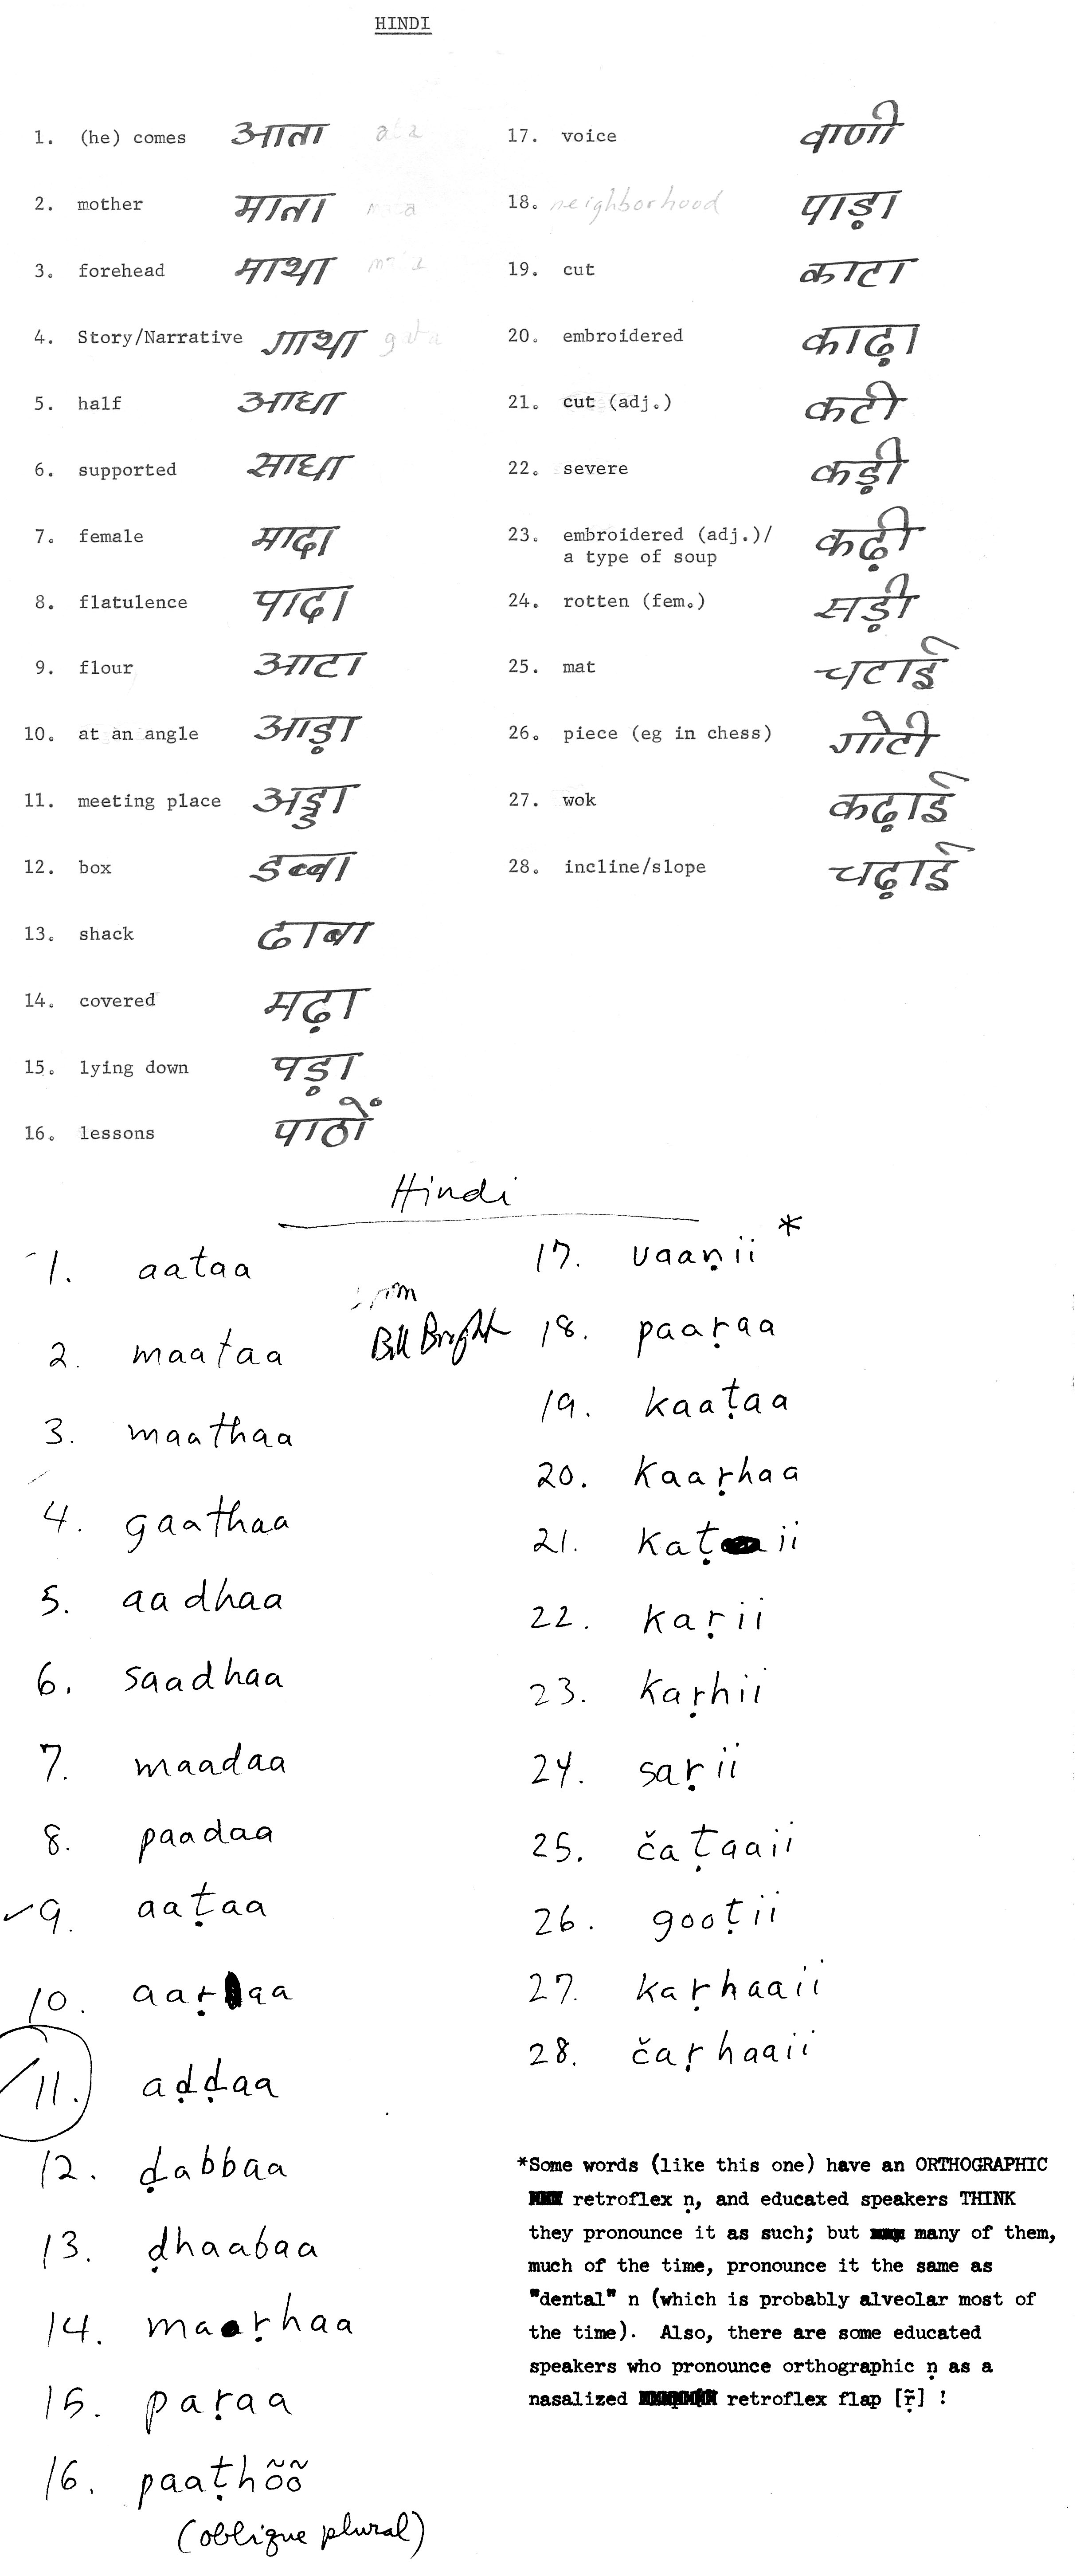 HINDI
1. (he) comes आता ata
2. mother माता mata
3. forehead माथा
4. Story/Narrative गाथा gata
5. half आधा
6. supported साधा
7. female मादा
8. flatulence पादा
9. flour आटा
10. at an angle आड़ा
11. meeting place अड्डा
12. box डब्बा
13. shack ढाबा
14. covered मढ़ा
15. lying down पड़ा
16. lessons पाठों
17. voice वाणी
18. neighborhood पाड़ा
19. cut काटा
20. embroidered काढ़ा
21. cut (adj.) कटी
22. severe कड़ी
23. embroidered (adj.)/ कढ़ी
a type of soup
24. rotten (fem.) सड़ी
25. mat चटाई
26. piece (eg in chess) गोटी
27. wok कढ़ाई
28. incline/slope चढ़ाई
Hindi
1. aataa
from
Bill Bright
2. maataa
3. maathaa
4. gaathaa
5. aadhaa
6. saadhaa
7. maadaa
8. paadaa
9. aaṭaa
10. aaṛaa
11. aḍḍaa
12. ḍabbaa
13. ḍhaabaa
14. maṛhaa
15. paṛaa
16. paaṭhõõ
(oblique plural)
17. vaaṇii *
18. paaṛaa
19. kaaṭaa
20. kaaṛhaa
21. kaṭii
22. kaṛii
23. kaṛhii
24. saṛii
25. čaṭaaii
26. gooṭii
27. kaṛhaaii
28. čaṛhaaii
*Some words (like this one) have an ORTHOGRAPHIC
retroflex ṇ, and educated speakers THINK
they pronounce it as such; but many of them,
much of the time, pronounce it the same as
"dental" n (which is probably alveolar most of
the time). Also, there are some educated
speakers who pronounce orthographic ṇ as a
nasalized retroflex flap [ṛ̃] !